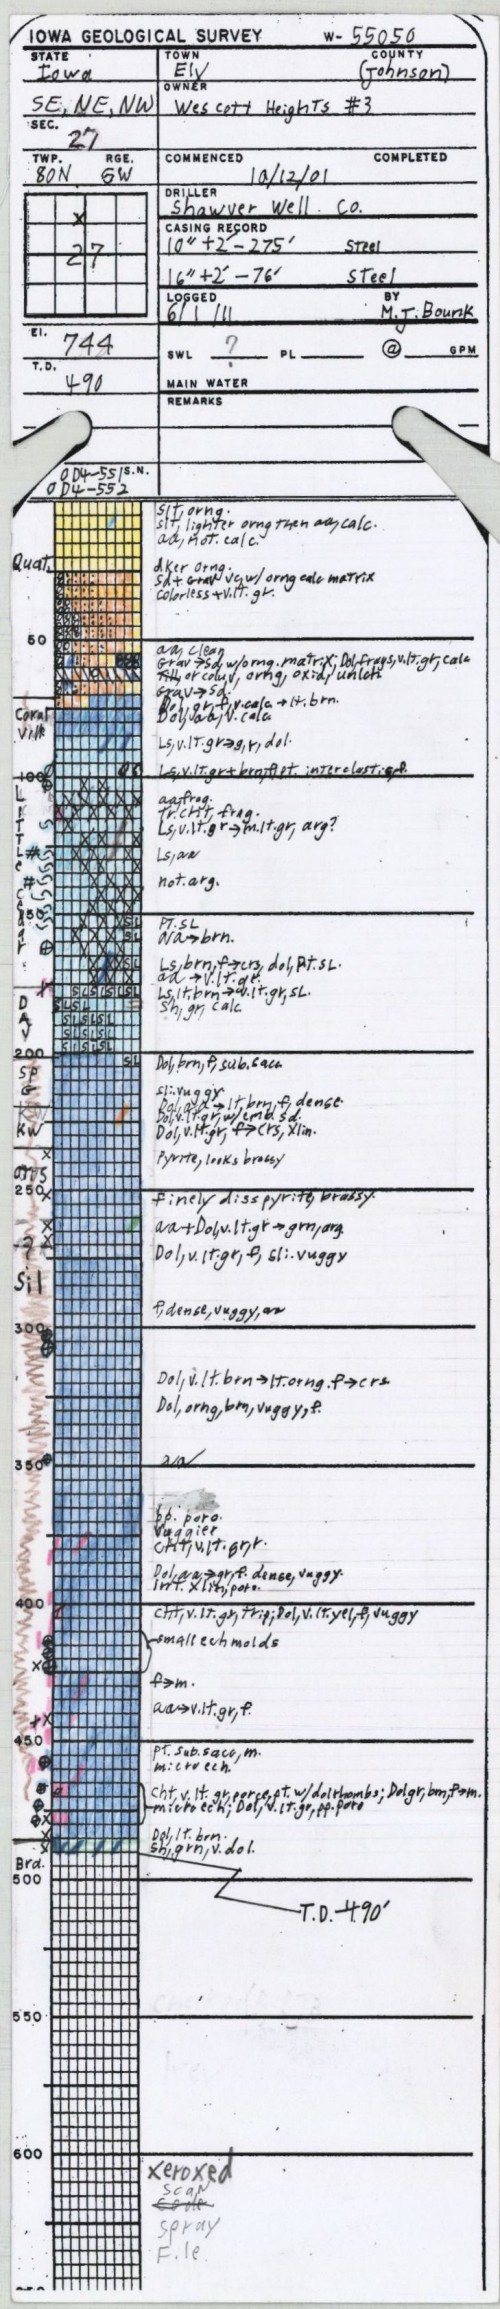 IOWA GEOLOGICAL SURVEY W- 55050
STATE TOWN COUNTY
Iowa Ely (Johnson)
OWNER
SE, NE, NW Wescott Heights #3
SEC.
27
TWP. RGE. COMMENCED COMPLETED
80N 6W 10/12/01
DRILLER
Shawver Well Co.
X
27
CASING RECORD
10" +2'-275' Steel
16" +2'-76' Steel
LOGGED BY
6/1/11 M.J. Bounk
El. 744
SWL ? PL @ GPM
T.D.
490
MAIN WATER
REMARKS
S.N.
OD4-551
OD4-552
slt, orng.
slt, lighter orng then aa, calc.
aa, not calc.
Quat.
dker orng.
sd + Grav vc, w/ orng calc matrix
colorless + v.lt. gr.
50
aa, clean
Grav→sd, w/orng. matrix, Dol, frags, v.lt. gr, calc
Till, or coluv, orng, oxid, unlch
Grav→sd.
Dol, gr, f, v.calc → lt. brn.
Coral
Dol, aa, v. calc
ville
Ls, v.lt.gr→gr, dol.
100
Ls, v.lt.gr + brn, f, pt. interclast.
Little Cedar
aa, frag.
Tr. cht, frag.
Ls, v.lt.gr→m.lt.gr, arg?
Ls, aa
not arg.
150
Pt. SL
SL
aa → brn.
Ls, brn, f→crs, dol, Pt. SL.
aa → v.lt.gr.
Ls, lt. brn→v.lt.gr, SL.
Sh, gr, calc
DAV
200
Dol, brn, f, sub. sacc
SP
G
sli. vuggy
Dol, aa → lt, brn, f, dense
Dol, v.lt.gr, w/ emb. sd.
KW
Dol, v.lt.gr, f→crs, xlin.
Pyrite, looks brassy
OTIS
250
finely diss pyrite, brassy.
aa + Dol, v.lt.gr → grn, arg
-?-
Dol, v.lt.gr, f, sli. vuggy
Sil
f, dense, vuggy, aa
300
Dol, v.lt. brn→lt. orng. f→crs
Dol, orng, brn, vuggy, f.
350
aa
pp. poro.
vuggier
cht, v.lt. gr, r
Dol, aa→gr, f. dense, vuggy.
int. xlin, poro.
400
cht, v.lt. gr, trip; Dol, v.lt. yel, f, vuggy
small ech molds
f→m.
aa→v.lt.gr, f.
450
pt. sub. sacc, m.
micro ech.
Cht, v.lt.gr, porce, pt. w/ dol rhombs; Dol gr, brn, f→m.
micro ech; Dol, v.lt.gr, pp. poro
Dol, lt. brn.
Sh, grn, v. dol.
Brd.
500
T.D. 490'
550
600
xeroxed
scan
code
spray
File